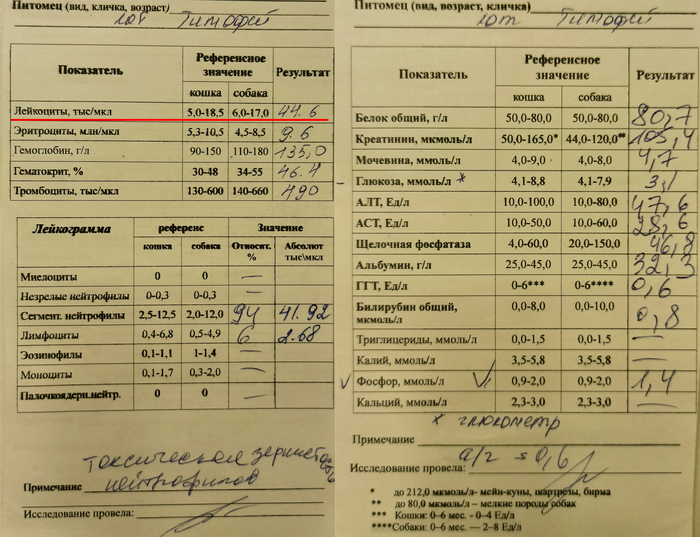 Питомец (вид, кличка, возраст) кот Тимофей
Показатель Референсное значение Результат
кошка собака
Лейкоциты, тыс/мкл 5,0-18,5 6,0-17,0 44.6
Эритроциты, млн/мкл 5,3-10,5 4,5-8,5 9.6
Гемоглобин, г/л 90-150 110-180 135,0
Гематокрит, % 30-48 34-55 46.4
Тромбоциты, тыс/мкл 130-600 140-660 490
Лейкограмма референс Значение
кошка собака Относит. % Абсолют тыс\мкл
Миелоциты 0 0 —
Незрелые нейтрофилы 0-0,3 0-0,3 —
Сегмент. нейтрофилы 2,5-12,5 2,0-12,0 94 41.92
Лимфоциты 0,4-6,8 0,5-4,9 6 2.68
Эозинофилы 0,1-1,1 1-1,4 —
Моноциты 0,1-1,7 0,3-2,0 —
Палочкоядерн.нейтр. 0 0 —
токсическая зернистость
Примечание нейтрофилов
Исследование провела:
Питомец (вид, возраст, кличка) кот Тимофей
Показатель Референсное значение Результат
кошка собака
Белок общий, г/л 50,0-80,0 50,0-80,0 80,7
Креатинин, мкмоль/л 50,0-165,0* 44,0-120,0** 105,4
Мочевина, ммоль/л 4,0-9,0 4,0-8,0 4,7
Глюкоза, ммоль/л * 4,1-8,8 4,1-7,9 3,1
АЛТ, Ед/л 10,0-100,0 10,0-80,0 47,6
АСТ, Ед/л 10,0-50,0 10,0-60,0 28,6
Щелочная фосфатаза 4,0-60,0 20,0-150,0 46,8
Альбумин, г/л 25,0-45,0 25,0-45,0 32,3
ГГТ, Ед/л 0-6*** 0-6**** 0,6
Билирубин общий, мкмоль/л 0,0-8,0 0,0-10,0 0,8
Триглицериды, ммоль/л 0,0-1,5 0,0-1,5 —
Калий, ммоль/л 3,5-5,8 3,5-5,8 —
Фосфор, ммоль/л 0,9-2,0 0,9-2,0 1,4
Кальций, ммоль/л 2,3-3,0 2,3-3,0 —
* глюкометр
Примечание
а/г = 0,6
Исследование провела:
* до 212,0 мкмоль/л- мейн-куны, шартрезы, бирма
** до 80,0 мкмоль/л – мелкие породы собак
*** Кошки: 0–6 мес. - 0–4 Ед/л
****Собаки: 0–6 мес. — 2–8 Ед/л